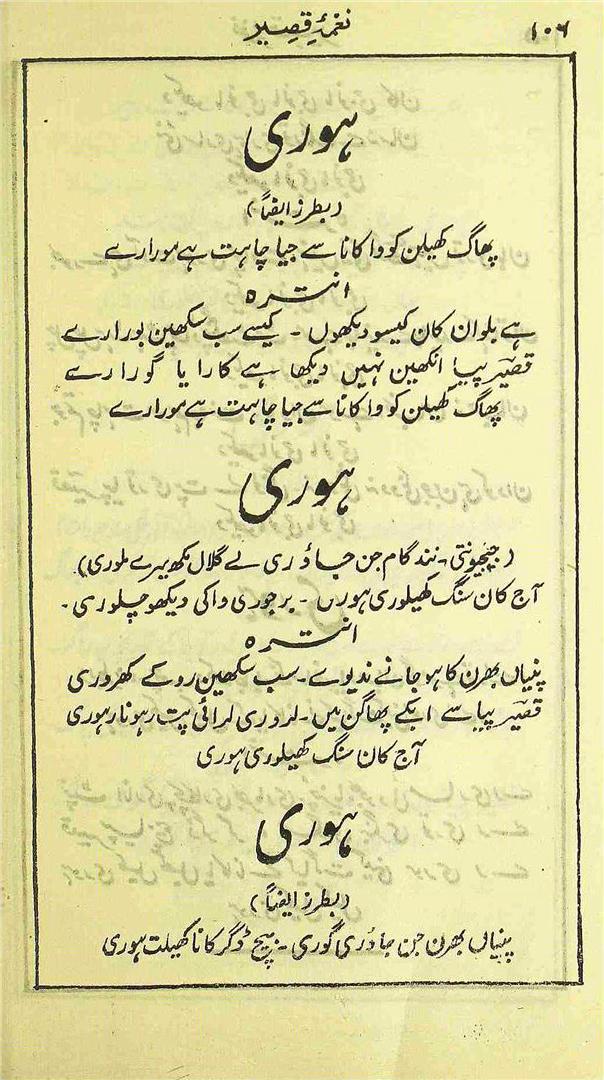 ۱۰۶
نغمۂ قصیر
ہوری
(بطرز ایضاً)
پھاگ کھیلن کو وا کانا سے جیا چاہت ہے مورارے
انترہ
ہے بلوان کان کیسو دیکھوں ۔ کیسے سب سکھین بورارے
قصیر پیا انکھین نہیں دیکھا ہے کارا یا گورارے
پھاگ کھیلن کو وا کانا سے جیا چاہت ہے مورارے
ہوری
(جیجیونتی ۔ نند گام جن جاؤ ری لے گلال مکھ بیرے ملوری)
آج کان سنگ کھیلوری ہوری ۔ برجوری واکی دیکھو چلوری ۔
انترہ
پنیاں بھرن کا ہو جانے ندیوے ۔ سب سکھین روکے کھروری
قصیر پیا سے ابکے پھاگن میں ۔ لروری لرائی پت رہو نارہوری
آج کان سنگ کھیلوری ہوری
ہوری
(بطرز ایضاً)
پنیاں بھرن جن جاؤری گوری ۔ بیچ ڈگر کانا کھیلت ہوری